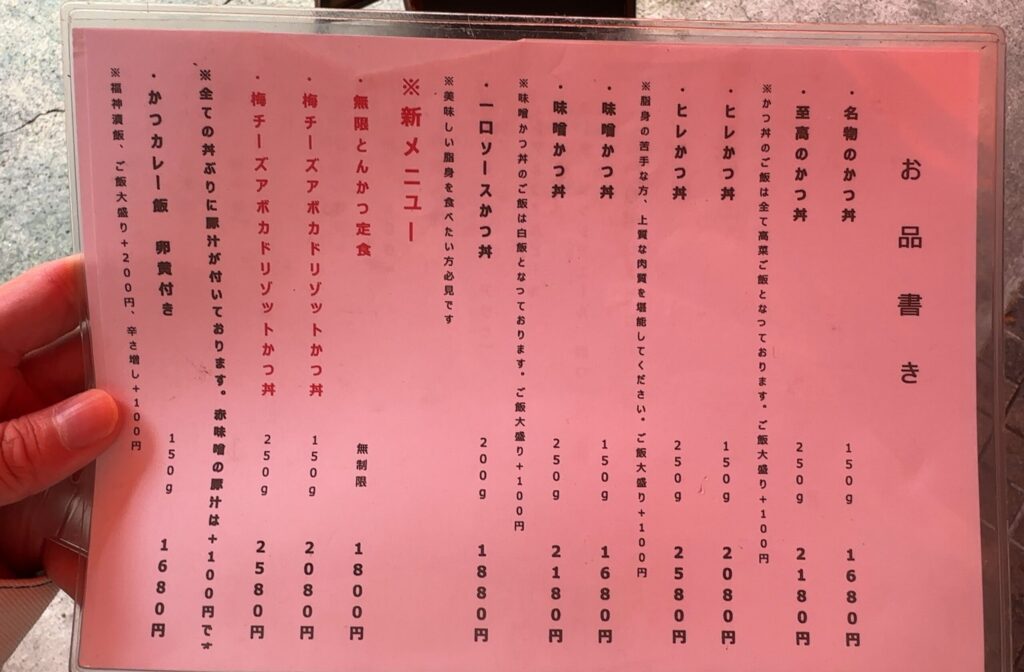 お品書き
・名物のかつ丼 150g 1680円
・至高のかつ丼 250g 2180円
※かつ丼のご飯は全て高菜ご飯となっております。ご飯大盛り+100円
・ヒレかつ丼 150g 2080円
・ヒレかつ丼 250g 2580円
※脂身の苦手な方、上質な肉質を堪能してください。ご飯大盛り+100円
・味噌かつ丼 150g 1680円
・味噌かつ丼 250g 2180円
※味噌かつ丼のご飯は白飯となっております。ご飯大盛り+100円
・一口ソースかつ丼 200g 1880円
※美味しい脂身を食べたい方必見です
※新メニュー
・無限とんかつ定食 無制限 1800円
・梅チーズアボカドリゾットかつ丼 150g 2080円
・梅チーズアボカドリゾットかつ丼 250g 2580円
※全ての丼ぶりに豚汁が付いております。赤味噌の豚汁は+100円です
・かつカレー飯 卵黄付き 150g 1680円
※福神漬飯、ご飯大盛り+200円、辛さ増し+100円